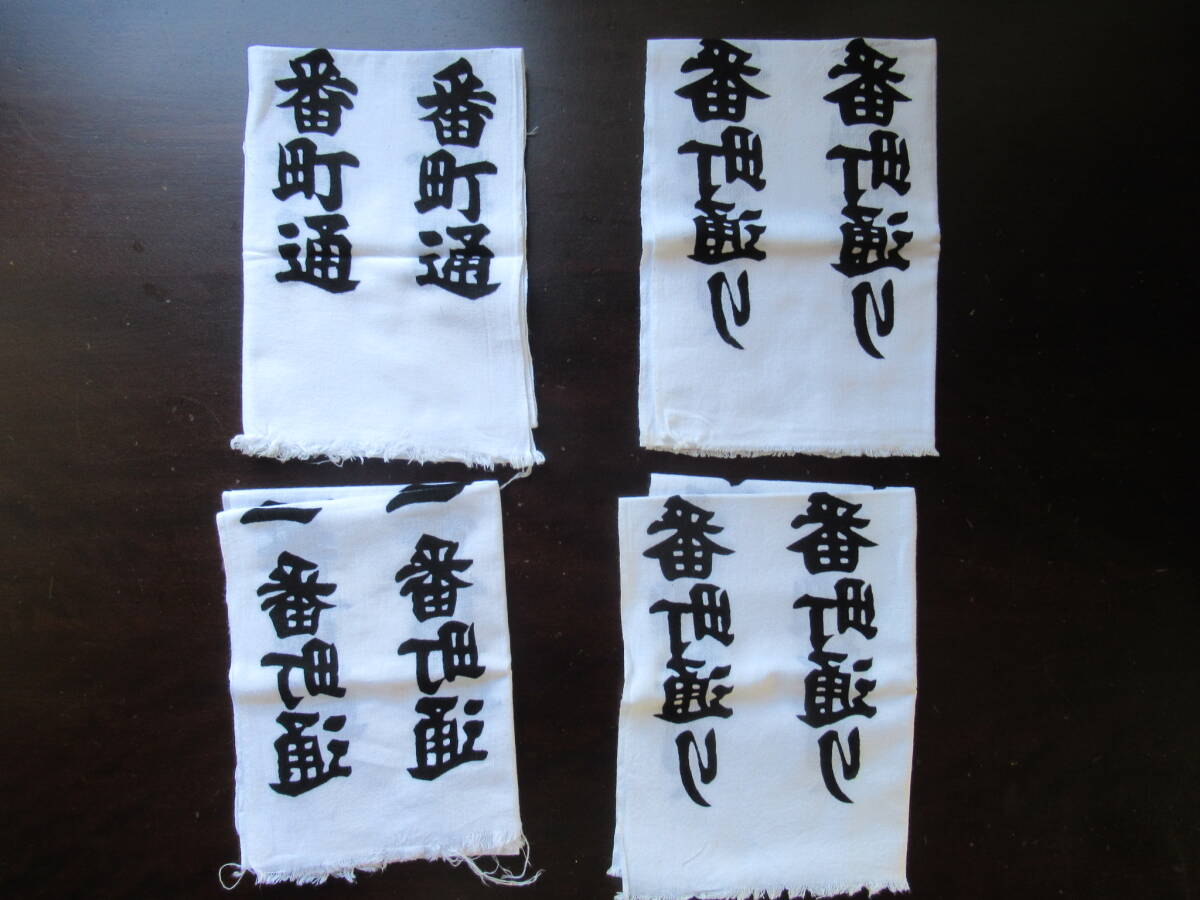 番町通
番町通
番町通り
番町通り
一番町通
一番町通
番町通り
番町通り